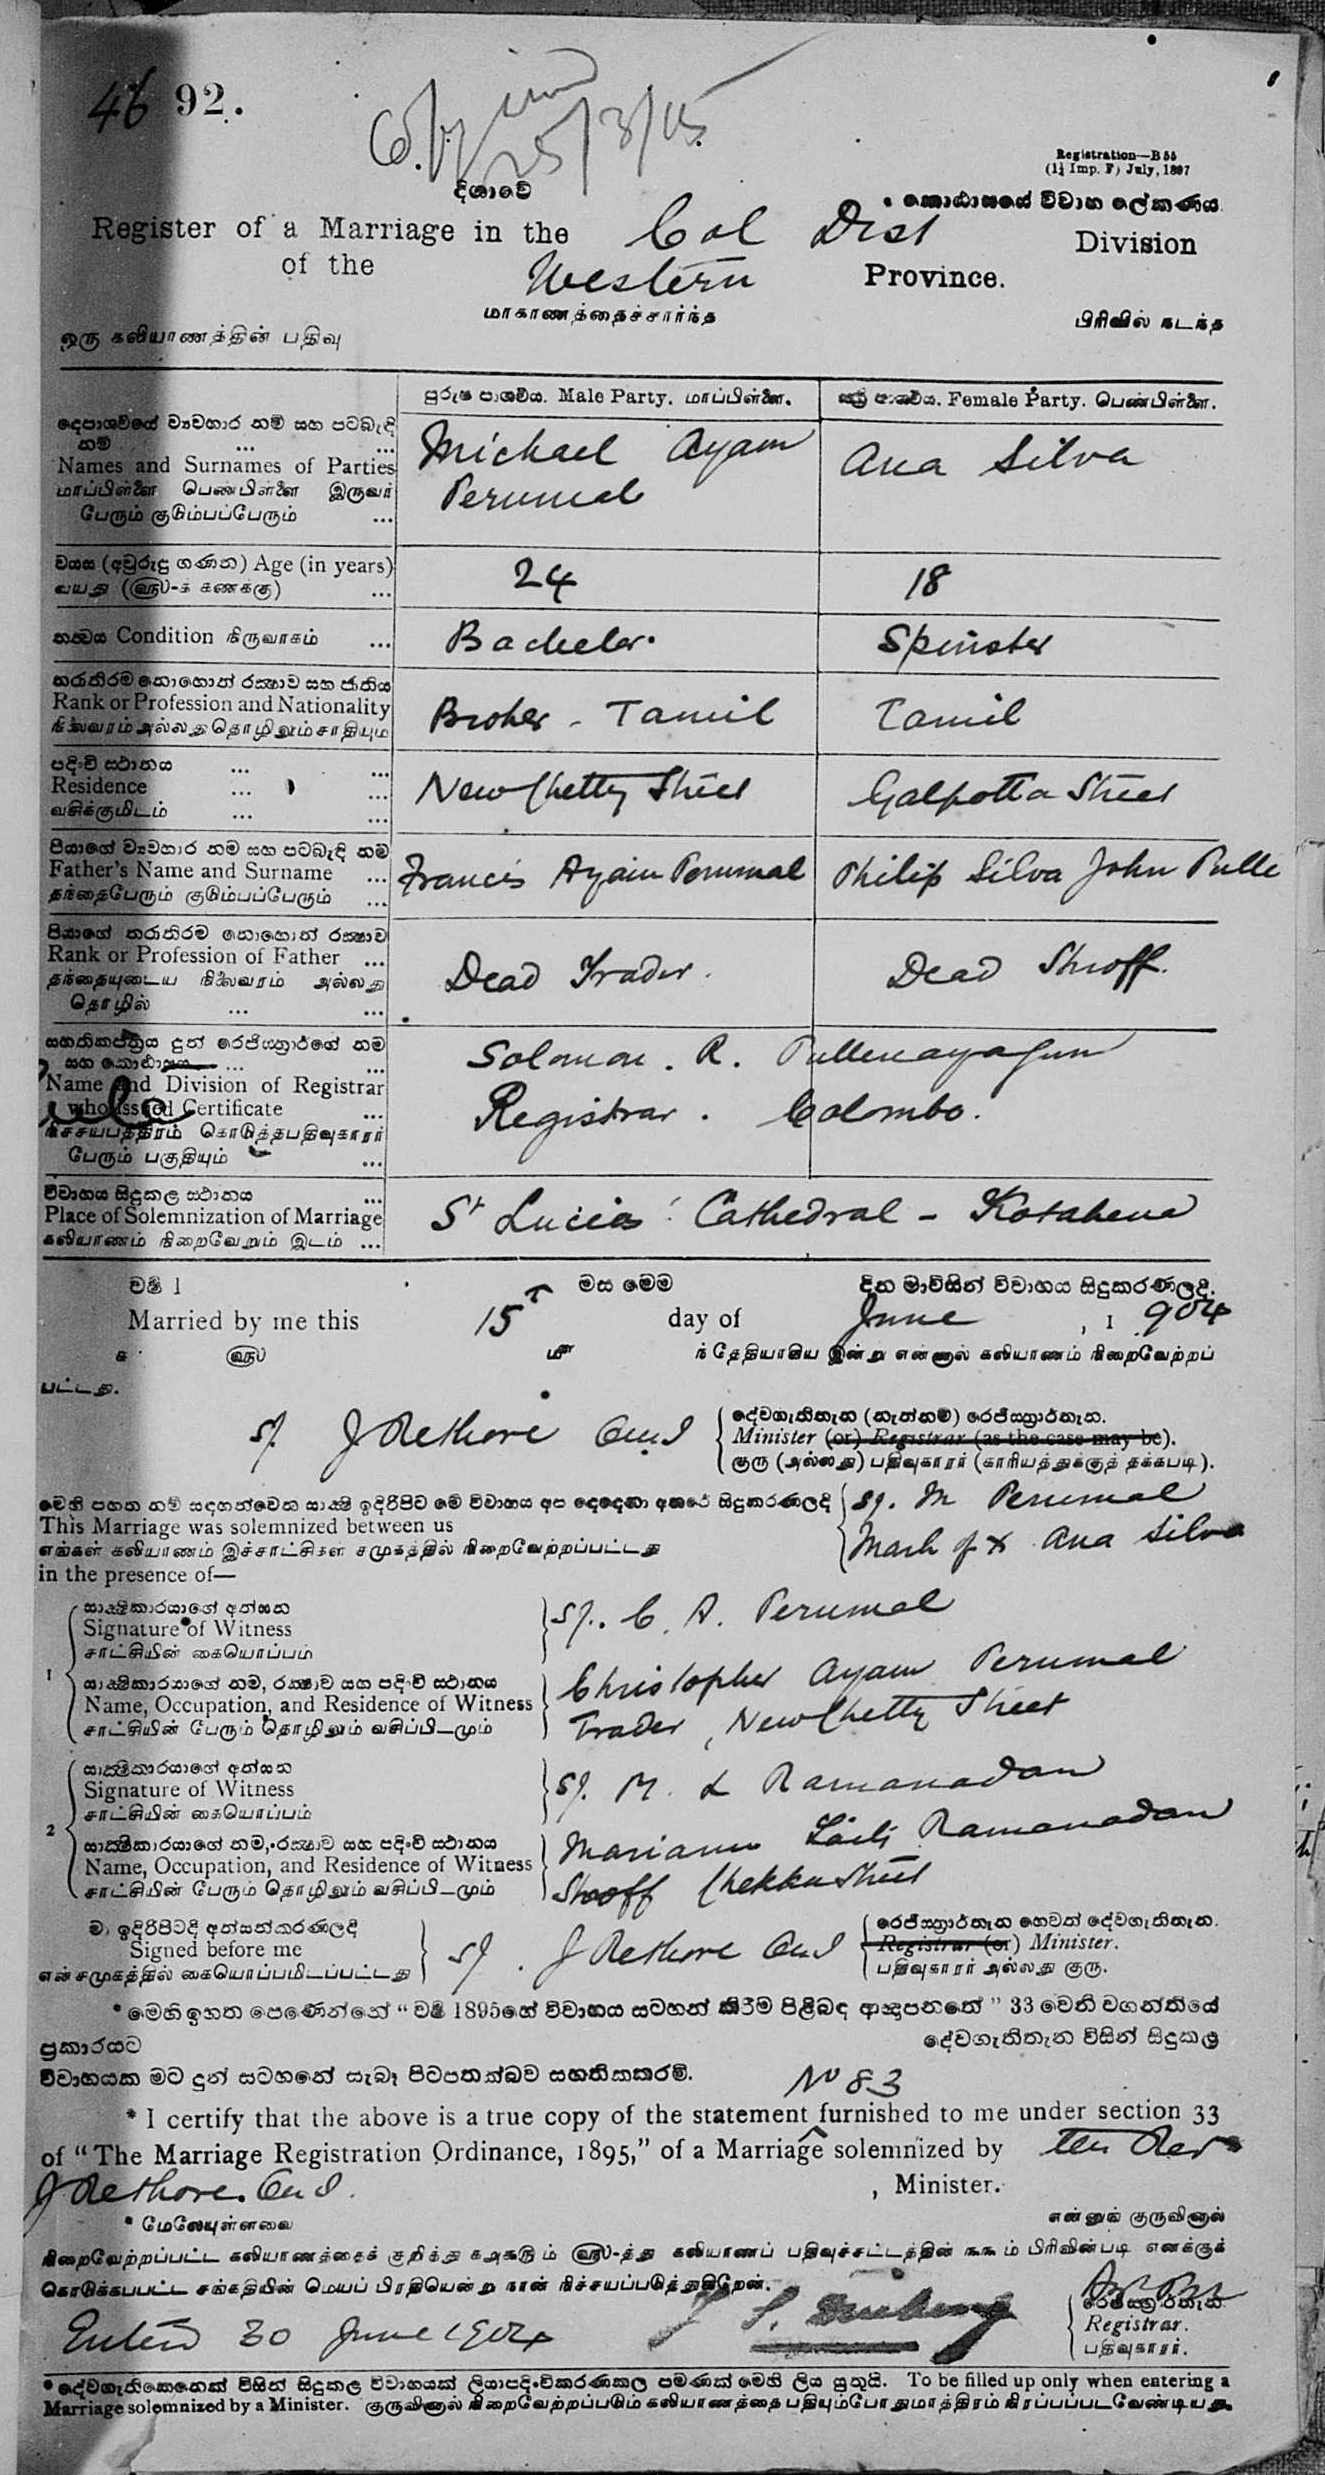 46 92.
25/3/15
Registration—B 55
(1½ Imp. F) July, 1897
දිශාවේ
කොඨාසයේ විවාහ ලේකණය
Register of a Marriage in the Col Dist Division
of the Western Province.
மாகாணத்தைச்சார்ந்த
ஒரு கலியாணத்தின் பதிவு
பிரிவில் நடந்த
පුරුෂ පාශවීය. Male Party. மாப்பிள்ளை.
ස්ත්‍රී පාශවීය. Female Party. பெண்பிள்ளை.
දෙපාශවීයේ ව්‍යවහාර නම් සහ පටබැඳි
නම් ... ...
Names and Surnames of Parties
மாப்பிள்ளை பெண்பிள்ளை இருவர்
பேரும் குடும்பப்பேரும் ...
Michael Ayam
Perumal
Ana Silva
වයස (අවුරුදු ගණන) Age (in years)
வயது (௵-க் கணக்கு) ...
24
18
තත්වය Condition நிருவாகம் ...
Bachelor.
Spinster
තරාතිරම නොහොත් රක්ෂාව සහ ජාතිය
Rank or Profession and Nationality
நிலவரம் அல்லது தொழிலும் சாதியும்
Broker - Tamil
Tamil
පදිංචි ස්ථානය ... ...
Residence ... ...
வசிக்குமிடம் ... ...
New Chetty Street
Galpotta Street
පියාගේ ව්‍යවහාර නම සහ පටබැඳි නම
Father's Name and Surname ...
தந்தைபேரும் குடும்பப்பேரும் ...
Francis Ayam Perumal
Philip Silva John Pulle
පියාගේ තරාතිරම නොහොත් රක්ෂාව
Rank or Profession of Father ...
தந்தையுடைய நிலவரம் அல்லது
தொழில் ... ...
Dead Trader.
Dead Shroff.
සහතිකපත්‍රය දුන් රෙජිස්ත්‍රාර්ගේ නම
සහ කොඨාසය ... ...
Name and Division of Registrar
who issued Certificate ...
நிச்சயபத்திரம் கொடுத்தபதிவுகாரர்
பேரும் பகுதியும் ...
Solomon. R. Pullenayagum
Registrar. Colombo.
විවාහය සිදුකල ස්ථානය ...
Place of Solemnization of Marriage
கலியாணம் நிறைவேறும் இடம் ...
St Lucia's Cathedral - Kotahena
වර්ෂ 1 මස මෙම දින මාවිසින් විවාහය සිදුකරණලදි.
Married by me this 15th day of June , 1 904
௵ ௴ ந் தேதியாகிய இன்று என்னால் கலியாணம் நிறைவேற்றப்
பட்டது.
s/. J Rethore Omi
දේවගැතිතැන (නැත්නම්) රෙජිස්ත්‍රාර්තැන.
Minister (or) Registrar (as the case may be).
குரு (அல்லது) பதிவுகாரர் (காரியத்துக்குத் தக்கபடி).
මෙහි පහත නම් සඳහන්වෙන සාක්ෂි ඉදිරිපිට මේ විවාහය අප දෙදෙනා අතරේ සිදුකරණලදි
This Marriage was solemnized between us
எங்கள் கலியாணம் இச்சாட்சிகள் சமுகத்தில் நிறைவேற்றப்பட்டது
in the presence of—
sg. M Perumal
Mark of x Ana Silva
1
සාක්ෂිකාරයාගේ අත්සන
Signature of Witness
சாட்சியின் கையொப்பம்
s/. C. A. Perumal
සාක්ෂිකාරයාගේ නම, රක්ෂාව සහ පදිංචි ස්ථානය
Name, Occupation, and Residence of Witness
சாட்சியின் பேரும் தொழிலும் வசிப்பிடமும்
Christopher Ayam Perumal
Trader, New Chetty Street
2
සාක්ෂිකාරයාගේ අත්සන
Signature of Witness
சாட்சியின் கையொப்பம்
s/. M. L Ramanadan
සාක්ෂිකාරයාගේ නම, රක්ෂාව සහ පදිංචි ස්ථානය
Name, Occupation, and Residence of Witness
சாட்சியின் பேரும் தொழிலும் வசிப்பிடமும்
Marianu Ramanadan
Shroff Chekku Street
මා ඉදිරිපිටදී අත්සන්කරණලදි
Signed before me
என்சமுகத்தில் கையொப்பமிடப்பட்டது
s/. J Rethore Omi
රෙජිස්ත්‍රාර්තැන හෙවත් දේවගැතිතැන.
Registrar (or) Minister.
பதிவுகாரர் அல்லது குரு.
* මෙහි ඉහත පෙණෙන්නේ “වර්ෂ 1895හේ විවාහය සටහන් කිරීම පිළිබඳ ආඥාපනතේ” 33 වෙනි වගන්තියේ
ප්‍රකාරයට දේවගැතිතැන විසින් සිදුකල
විවාහයක මට දුන් සටහනේ සැබෑ පිටපතක්බව සහතිකකරමි.
No 83
* I certify that the above is a true copy of the statement furnished to me under section 33
of “The Marriage Registration Ordinance, 1895,” of a Marriage solemnized by the Rev
J Rethore. Omi. , Minister.
* மேலேயுள்ளவை என்னுங் குருவினால்
நிறைவேற்றப்பட்ட கலியாணத்தைக் குறித்து ௧௮௯௫ம் ௵-த்து கலியாணப் பதிவுச்சட்டத்தின் ௩௩ம் பிரிவின்படி எனக்குக்
கொடுக்கபபட்ட சங்கதியின் மெய்ப் பிரதியென்று நான் நிச்சயப்படுத்துகிறேன்.
Entd 30 June 1904
රෙජිස්ත්‍රාර්තැන.
Registrar.
பதிவுகாரர்.
* දේවගැතිකෙනෙක් විසින් සිදුකල විවාහයක් ලියාපදිංචිකරණකල පමණක් මෙහි ලිය යුතුයි. To be filled up only when entering a
Marriage solemnized by a Minister. குருவினால் நிறைவேற்றப்படும் கலியாணத்தை பதியும்போது மாத்திரம் நிரப்பப்படவேண்டியது.